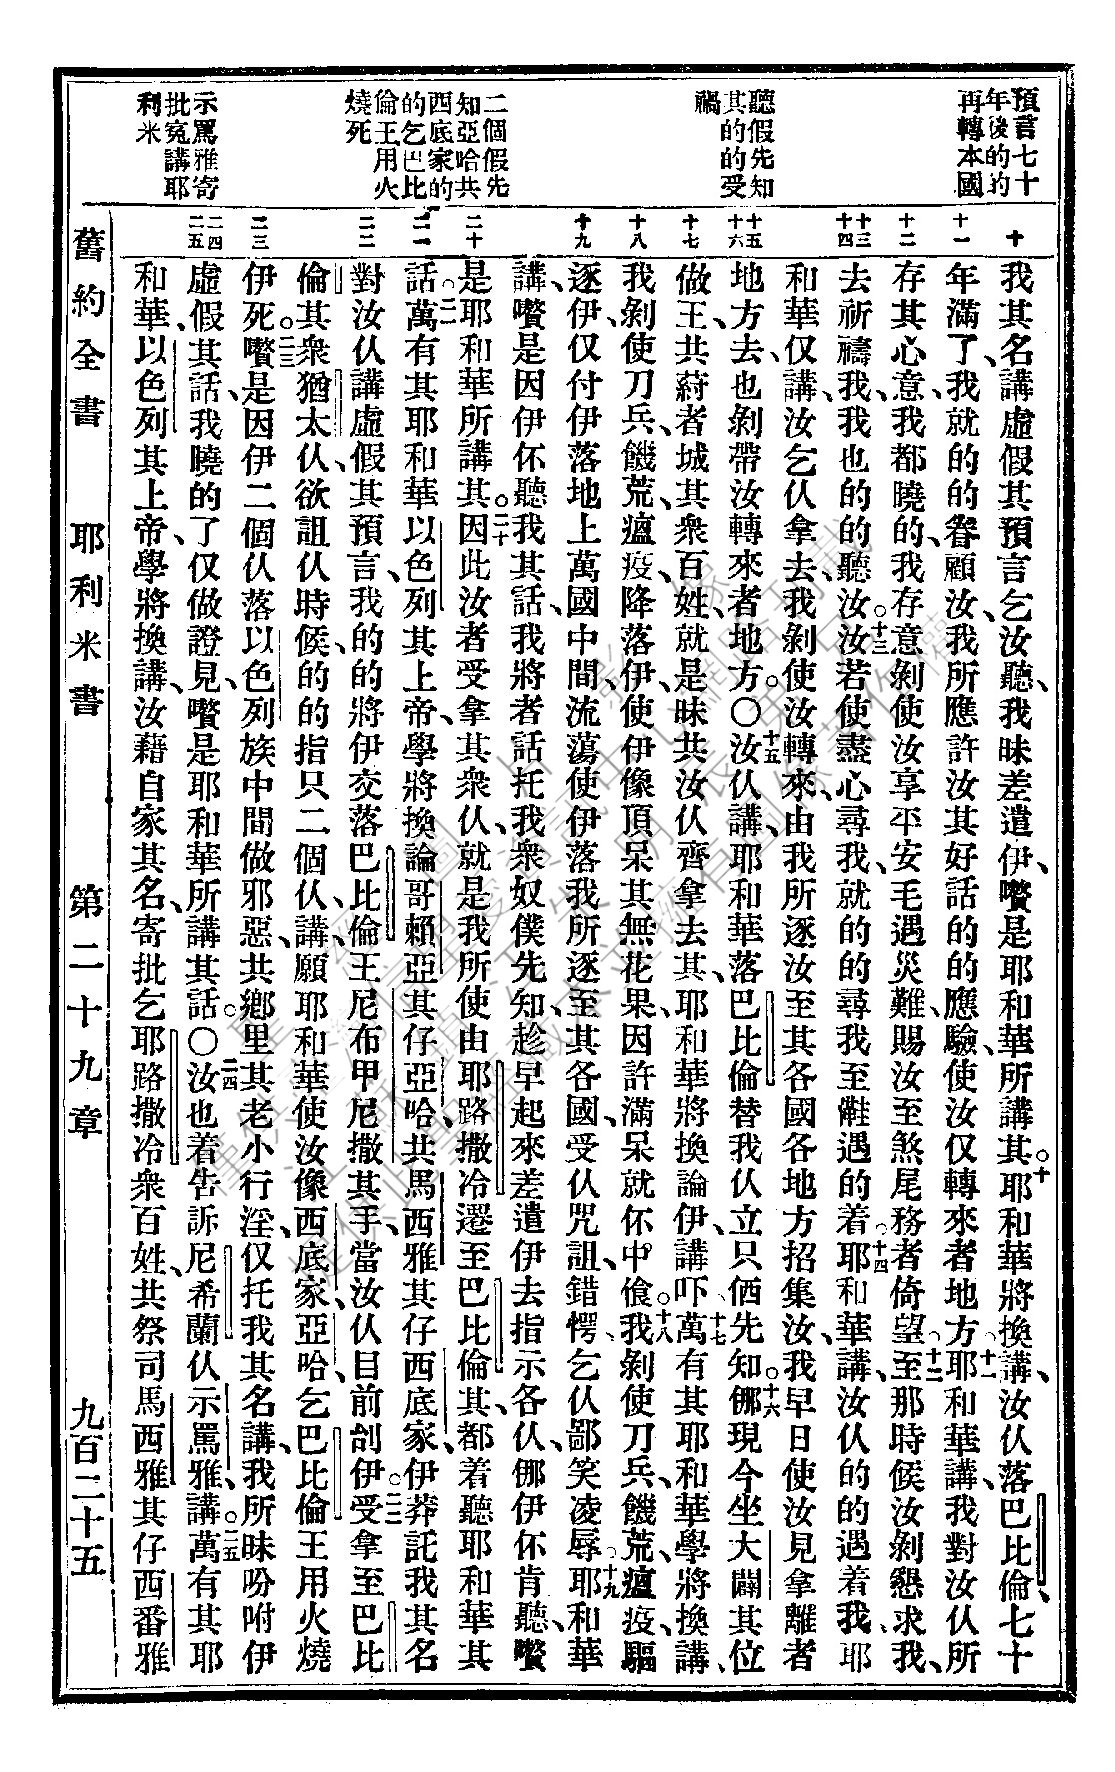 預言七十
年後的的
再轉本國
聽假先知
其的的受
禍
二個假先
知亞哈共
西底家的
的乞巴比
倫王用火
燒死
示罵雅寄
批冤講耶
利米
十
十一
十二
十三
十四
十五
十六
十七
十八
十九
二十
二一
二二
二三
二四
二五
我其名、講虛假其預言、乞汝聽、我昧差遣伊、嚽是耶和華所講其。十耶和華將換講、汝仈落巴比倫、七十
年滿了、我就的的眷顧汝、我所應許汝其好話的的應驗、使汝仅轉來者地方。十一耶和華講、我對汝仈所
存其心意、我都曉的、我存意剝使汝享平安毛遇災難、賜汝至煞尾務者倚望。十二至那時候汝剝懇求我、
去祈禱我、我也的的聽汝。十三汝若使盡心尋我、就的的尋我至雝遇的着。十四耶和華講、汝仈的的遇着我、耶
和華仅講、汝乞仈拿去、我剝使汝轉來、由我所逐汝至其各國各地方招集汝、我早日使汝見拿離者
地方去、也剝帶汝轉來者地方。〇十五汝仈講、耶和華落巴比倫替我仈立只価先知。十六㑚現今坐大闢其位
做王、共葤者城其衆百姓、就是昧共汝仈齊拿去其、耶和華將換論伊、講吓、十七萬有其耶和華學將換講、
我剝使刀兵、饑荒、瘟疫、降落伊、使伊像頂呆其無花果、因許滿呆就伓中飧。十八我剝使刀兵、饑荒、瘟疫、驅
逐伊、仅付伊落地上萬國中間、流蕩、使伊落我所逐至其各國、受仈咒詛、錯愕、乞仈鄙笑凌辱、十九耶和華
講、嚽是因伊伓聽我其話、我將者話托我衆奴僕先知、趁早起來差遣伊去指示各仈、㑚伊伓肯聽、嚽
是耶和華所講其。二十因此汝者受拿其衆仈、就是我所使由耶路撒冷遷至巴比倫其、都着聽耶和華其
話。二一萬有其耶和華以色列其上帝、學將換論哥賴亞其仔亞哈、共馬西雅其仔西底家、伊莽託我其名
對汝仈講虛假其預言、我的的將伊交落巴比倫王尼布甲尼撒其手、當汝仈目前剖伊。二二受拿至巴比
倫其衆猶太仈、欲詛仈時候、的的指只二個仈、講、願耶和華使汝像西底家、亞哈、乞巴比倫王用火燒
伊死。二三嚽是因伊二個仈落以色列族中間做邪惡、共鄉里其老小行淫、仅托我其名講、我所昧吩咐伊
虛假其話、我曉的了仅做證見、嚽是耶和華所講其話。〇二四汝也着告訴尼希蘭仈示罵雅、講。二五萬有其耶
和華、以色列其上帝、學將換講、汝藉自家其名、寄批乞耶路撒冷衆百姓、共祭司馬西雅其仔西番雅
舊約全書 耶利米書 第二十九章 九百二十五